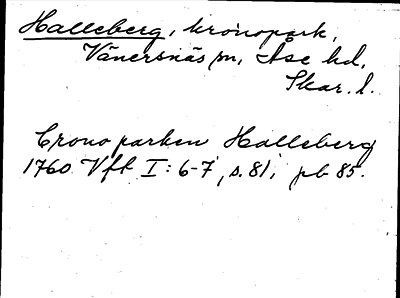 Halleberg, kronopark,
Vänersnäs sn, Åse hd,
Skar. l.
Crono parken Halleberg
1760 Vft I: 6-7, s. 81; pb 85.